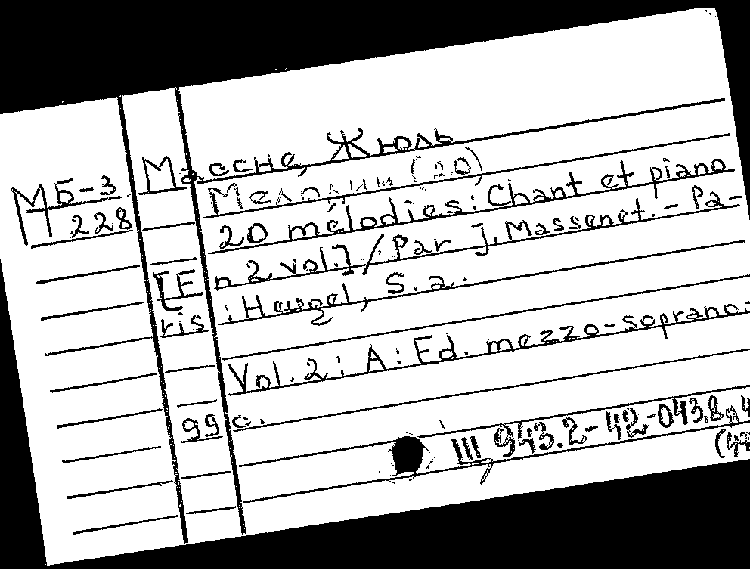 Массне, Жюль
МБ-3
228
Мелодии (20)
20 mélodies: Chant et piano
[En 2 vol.] / Par J. Massenet. - Pa-
ris: Heugel, S. a.
Vol. 2: A: Ed. mezzo-soprano.
99 с.
III 943.2-42-043.8